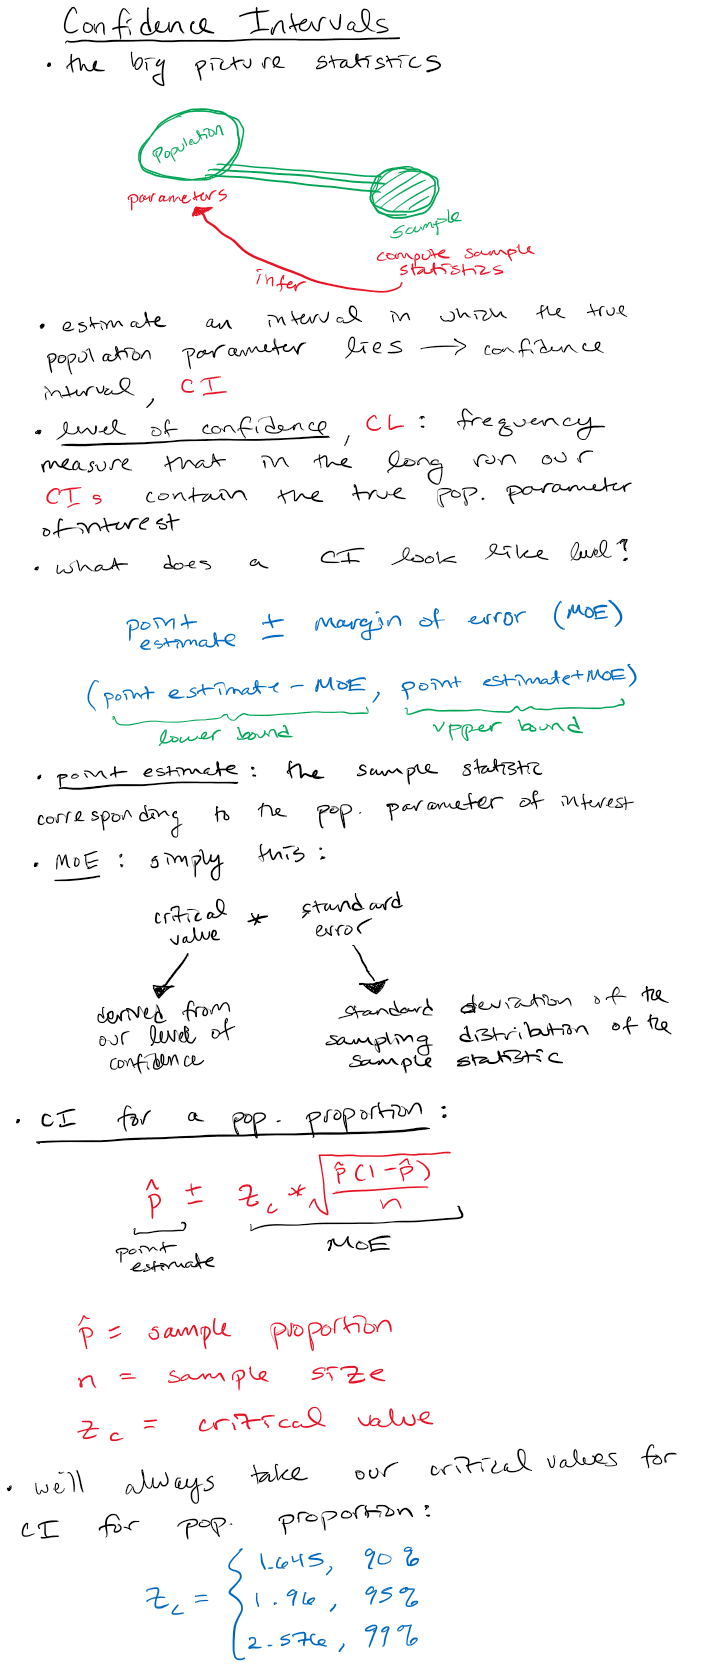 Confidence Intervals
• the big picture statistics
Population
parameters
Sample
compute sample
statistics
infer
• estimate an interval in which the true
population parameter lies → confidence
interval, CI
• level of confidence, CL: frequency
measure that in the long run our
CIs contain the true pop. parameter
of interest
• what does a CI look like level?
point
estimate ± margin of error (MOE)
(point estimate - MOE, point estimate + MOE)
lower bound
upper bound
• point estimate: the sample statistic
corresponding to the pop. parameter of interest
• MOE: simply this:
critical
value * standard
error
derived from
our level of
confidence
standard deviation of the
sampling distribution of the
sample statistic
• CI for a pop. proportion:
p̂ ± z_c * √(p̂(1-p̂)/n)
point
estimate
MOE
p̂ = sample proportion
n = sample size
z_c = critical value
• we'll always take our critical values for
CI for pop. proportion:
z_c = { 1.645, 90%
1.96, 95%
2.576, 99%